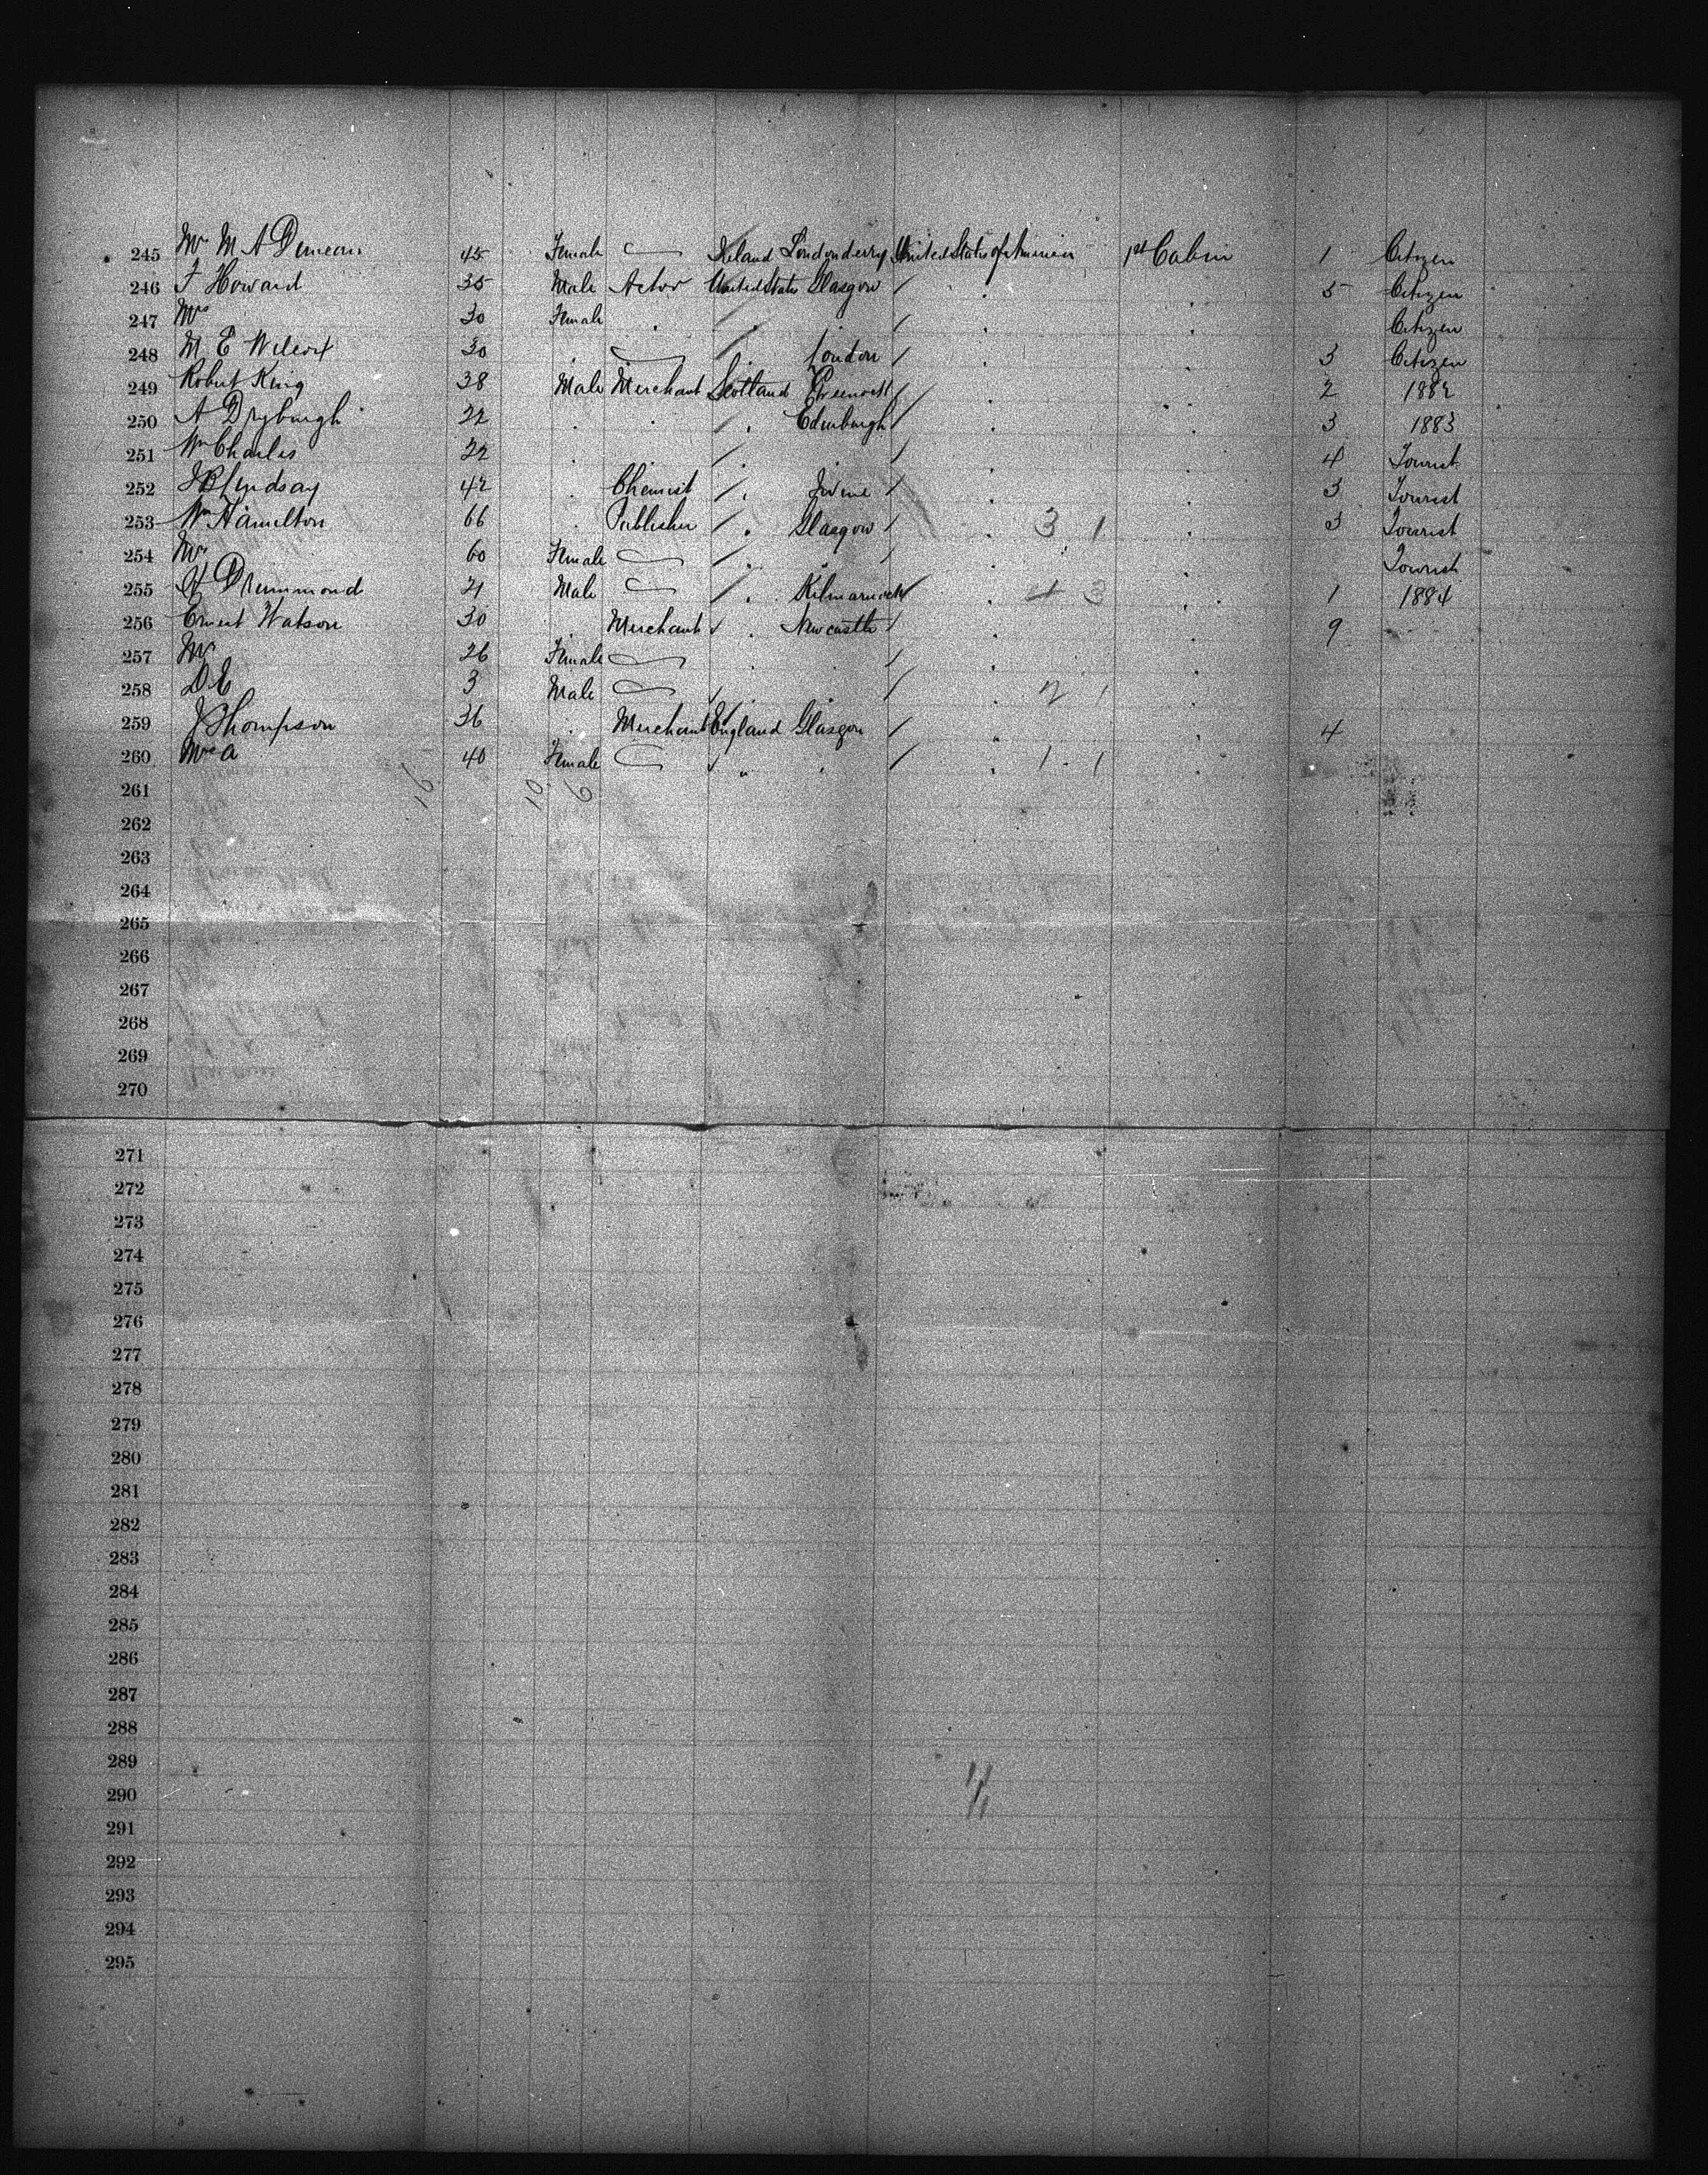 245 Mrs M A Duncan 45 Female Ireland Londonderry United States of America 1st Cabin 1 Citizen
246 F Howard 35 Male Actor United States Glasgow / 5 Citizen
247 Mrs 30 Female / Citizen
248 M E Wilcox 30 London / 3 Citizen
249 Robert King 38 Male Merchant Scotland Greenock / 2 1882
250 A Dryburgh 22 / Edinburgh / 3 1883
251 Wm Charles 22 / / 4 Tourist
252 J B Lindsay 42 Chemist / Irvine / 3 Tourist
253 Wm Hamilton 66 Publisher / Glasgow / 3 1 3 Tourist
254 Mrs 60 Female / / Tourist
255 Drummond 21 Male / Kilmarnock / 3 1 1884
256 Ernest Watson 30 Merchant Newcastle / 9
257 Mrs 26 Female /
258 D E 3 Male / 2 1
259 J Thompson 36 Merchant England Glasgow / 4
260 Mrs A 40 Female / 1 - 1
261 16 10 6
262
263
264
265
266
267
268
269
270
271
272
273
274
275
276
277
278
279
280
281
282
283
284
285
286
287
288
289
290
291
292
293
294
295